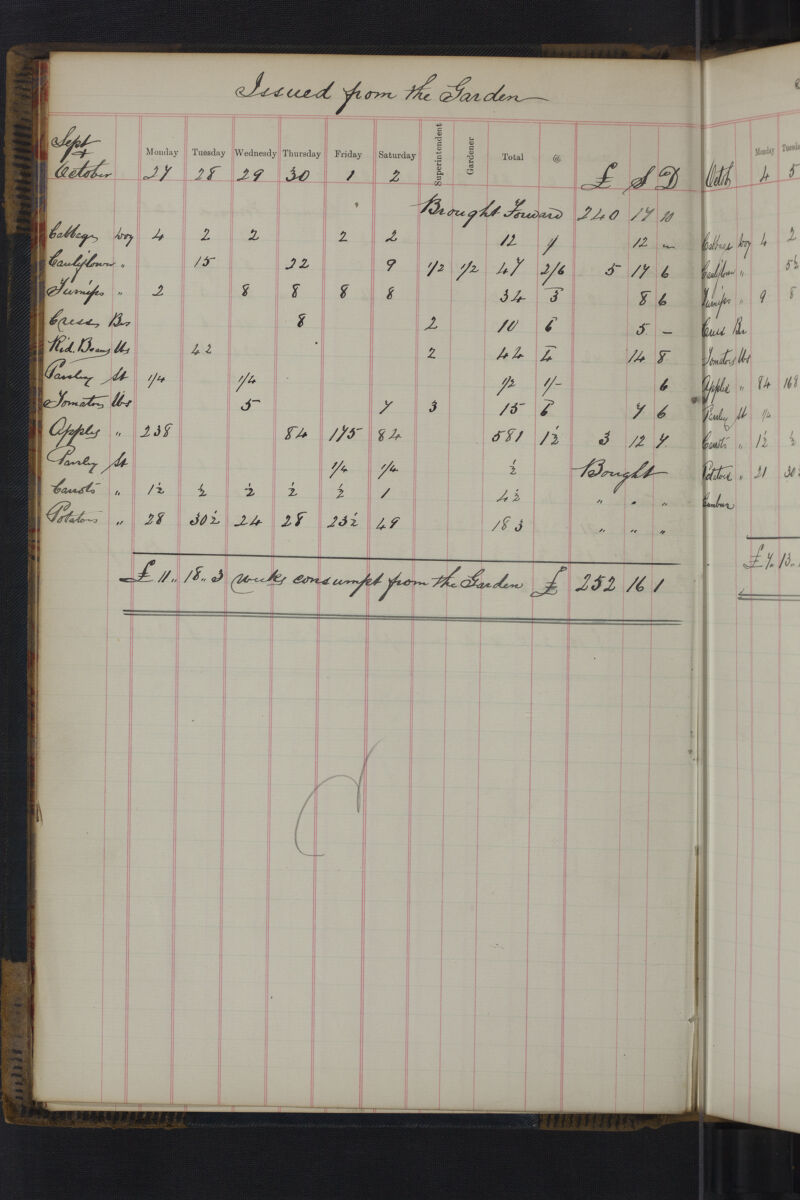 Issued from the Garden
Sept & October Monday 27 Tuesday 28 Wednesdy 29 Thursday 30 Friday 1 Saturday 2 Superintendent Gardener Total @ £ S D
Brought Forward 240 17 10
Cabbages Doz 4 2 2 2 2 12 1/ 12 —
Cauliflower " 15 22 9 1/2 1/2 47 2/6 5 17 6
Turnips " 2 8 8 8 8 34 3 8 6
Cress Bs 8 2 10 6 5 —
Kid. Beans lbs 42 2 44 4 14 8
Parsley St 1/4 1/4 1/2 1/- 6
Tomatoes lbs 5 7 3 15 6 7 6
Apples " 238 84 175 84 581 1½ 3 12 7
Parsley St 1/4 1/4 ½ Bought
Carrots " 1½ ½ ½ ½ ½ 1 4½ " " "
Potatoes " 28 30½ 24 28 23½ 49 183 " " "
£11,, 18,, 3 weeks consumpt from the Garden £ 252 16 1
Octbr Monday 4 5
Cabbages Doz 4 2
Cauliflower " 5½
Turnips " 9 8
Cress
Tomatoes lbs
Apples " 84 168
Parsley St
Carrots " 1½ ½
Potatoes " 21
£7. 13.